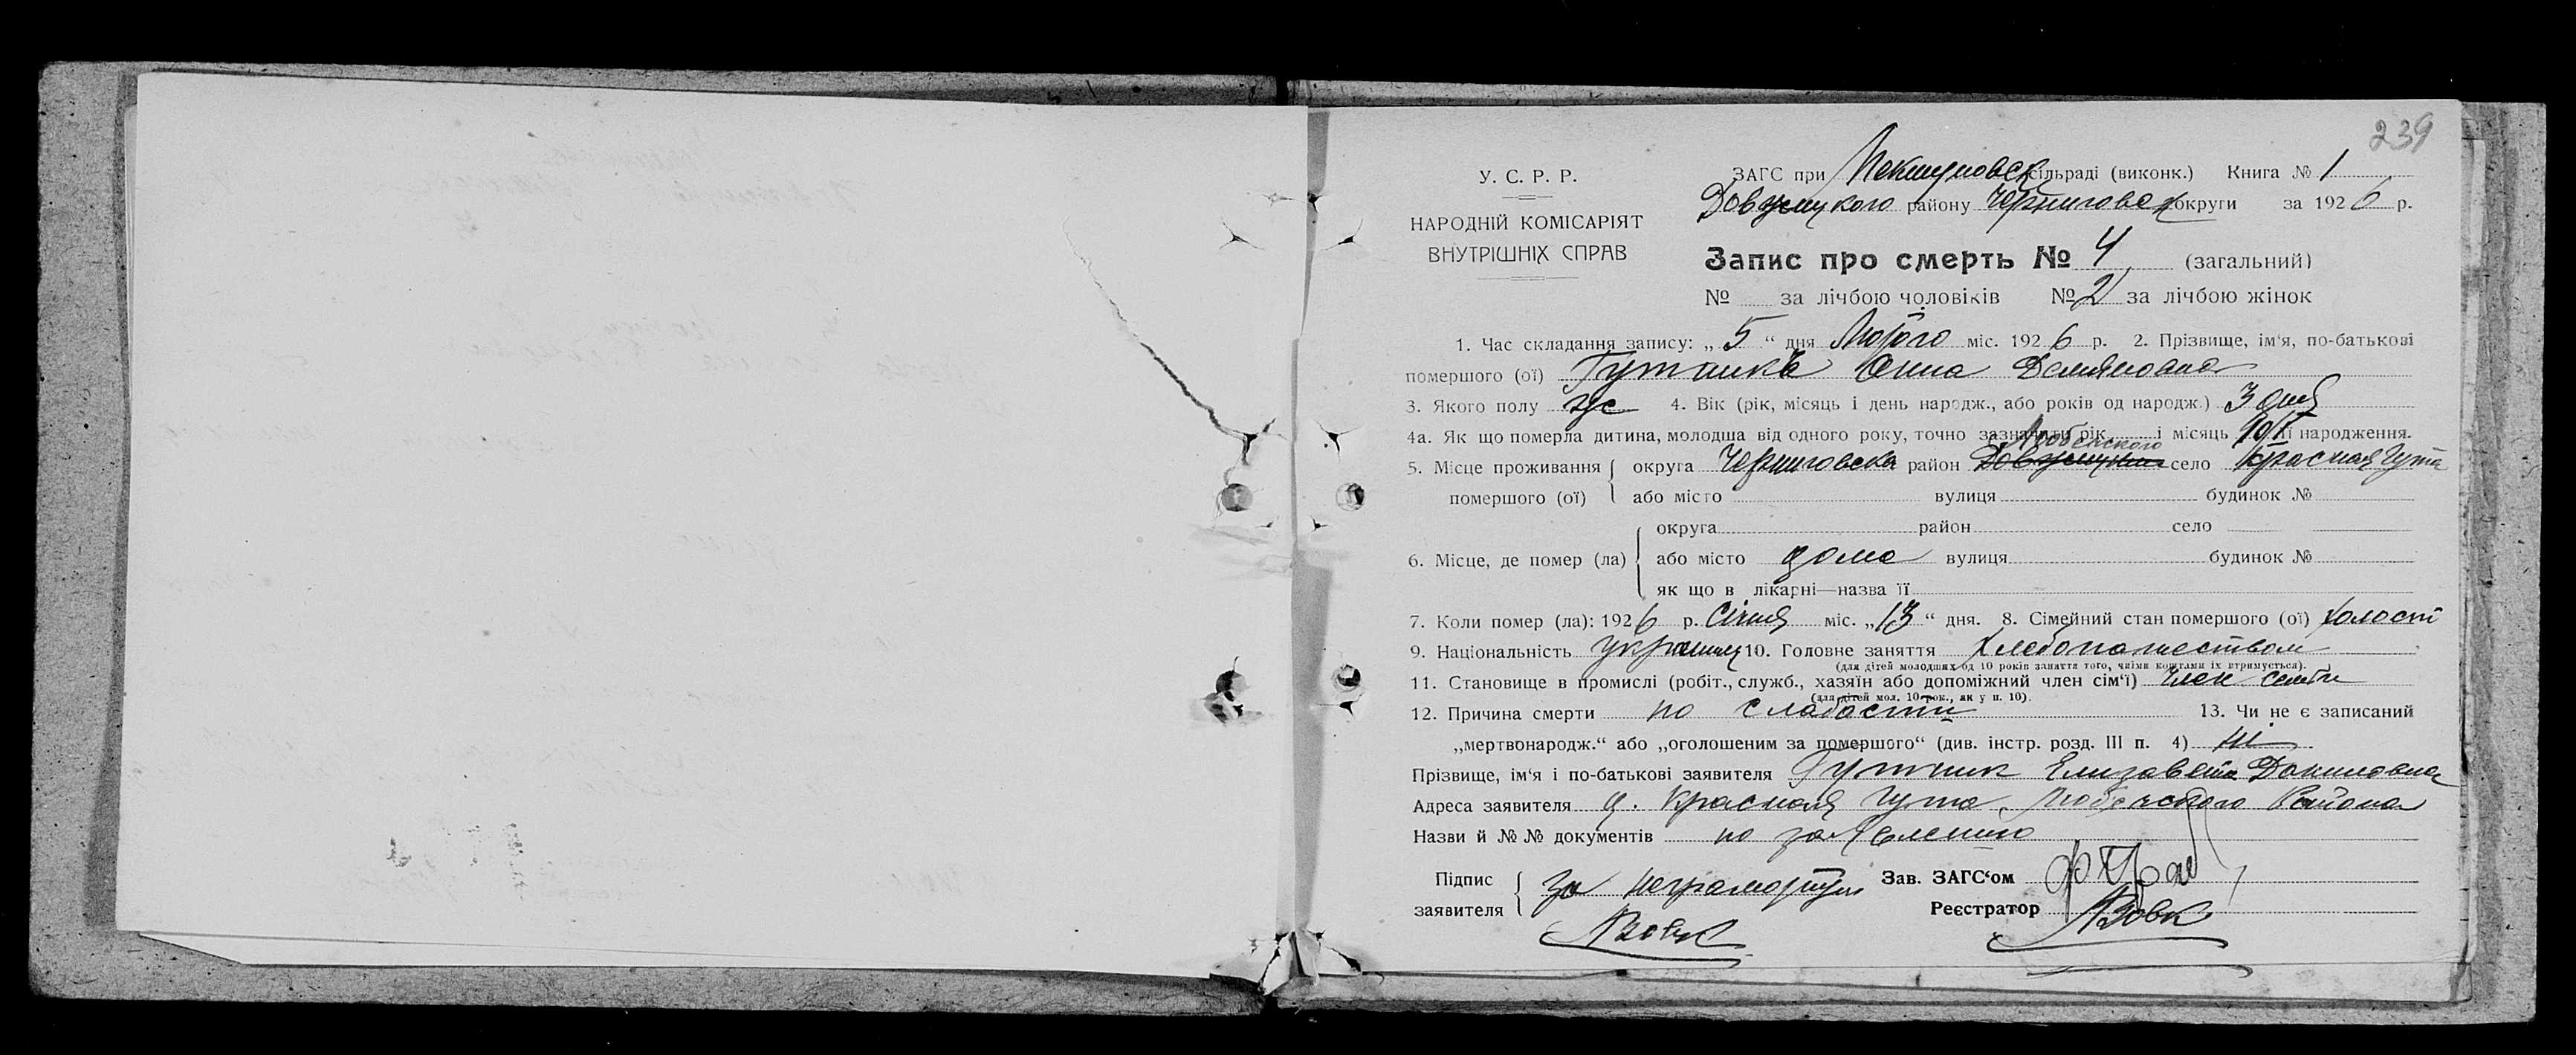 239
У. С. Р. Р.
НАРОДНІЙ КОМІСАРІЯТ
ВНУТРІШНІХ СПРАВ
ЗАГС при сільраді (виконк.) Книга № 1
району Черниговск округи за 1926 р.
Запис про смерть № 4 (загальний)
№ за лічбою чоловіків № 2 за лічбою жінок
1. Час складання запису: „ 5 “ дня Лютого міс. 1926 р. 2. Прізвище, ім‘я, по-батькові
помершого (ої) Анна Демяновна
3. Якого полу 4. Вік (рік, місяць і день народж., або років од народж.) 3 дня
4а. Як що померла дитина, молодша від одного року, точно зазначити рік і місяць 10/I її народження.
5. Місце проживання округа Черниговска район Любечского село Красная Гута
помершого (ої) або місто вулиця будинок №
округа район село
6. Місце, де помер (ла) або місто дома вулиця будинок №
як що в лікарні—назва її
7. Коли помер (ла): 1926 р. Січня міс. „13“ дня. 8. Сімейний стан помершого (ої) холост
9. Національність 10. Головне заняття Хлебопашеством
(для дітей молодших од 10 років заняття того, чиїми коштами їх втримується).
11. Становище в промислі (робіт., служб., хазяїн або допоміжний член сім‘ї) член семьи
(для дітей мол. 10 рок., як у п. 10).
12. Причина смерти по слабости 13. Чи не є записаний
„мертвонародж.“ або „оголошеним за помершого“ (див. інстр. розд. III п. 4) ні
Прізвище, ім‘я і по-батькові заявителя Гутник Елизавета Даниловна
Адреса заявителя д. Красная Гута, Любечского Района
Назви й №№ документів по заявлению
Підпис за Зав. ЗАГС‘ом
заявителя Вовк Реєстратор Вовк